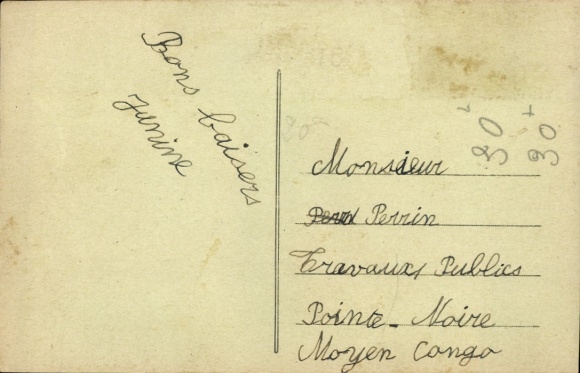 Bons baisers
Janine
Monsieur
Perrin
Travaux Publics
Pointe-Noire
Moyen Congo
30
30